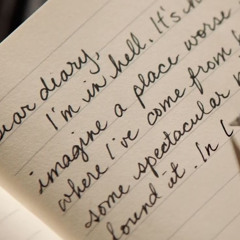 ear diary,
I'm in hell. It's
imagine a place worse
where I've come from
some spectacular
found it. In